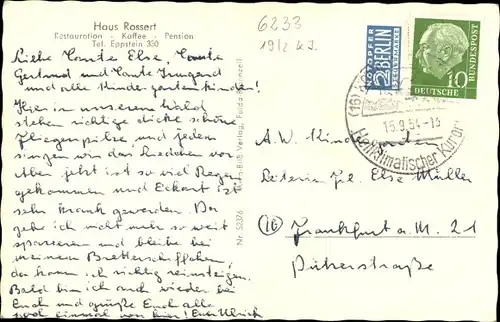 Haus Rossert
Restauration - Kaffee - Pension
Tel. Eppstein 330
6233
1912 KJ.
Liebe Tante Else, Tante
Gertrud und Tante Irmgard
und alle Kindergartenkinder!
Hier in unserem Wald
stehen richtige dicke schöne
Fliegenpilze, und jedem
singen wir das Liedchen vor.
Aber jetzt ist so viel Regen
gekommen und Eckart ist
sehr krank geworden. Da
gehe ich nicht mehr so weit
spazieren und bleibe bei
meinem Bretterschiffchen,
da kann ich richtig reinsteigen.
Bald bin ich auch wieder bei
Euch und grüße Euch alle
noch einmal von hier! Euer Ulrich
Verlag, Fulda
Nr. 52376
NOTOPFER
2 BERLIN
STEUERMARKE
10
DEUTSCHE BUNDESPOST
(16)
15.9.54-13
Heilklimatischer Kurort
A.W. Kindergarten
Leiterin Frl. Else Müller
(16) Frankfurt a. M. 21
Pützerstraße